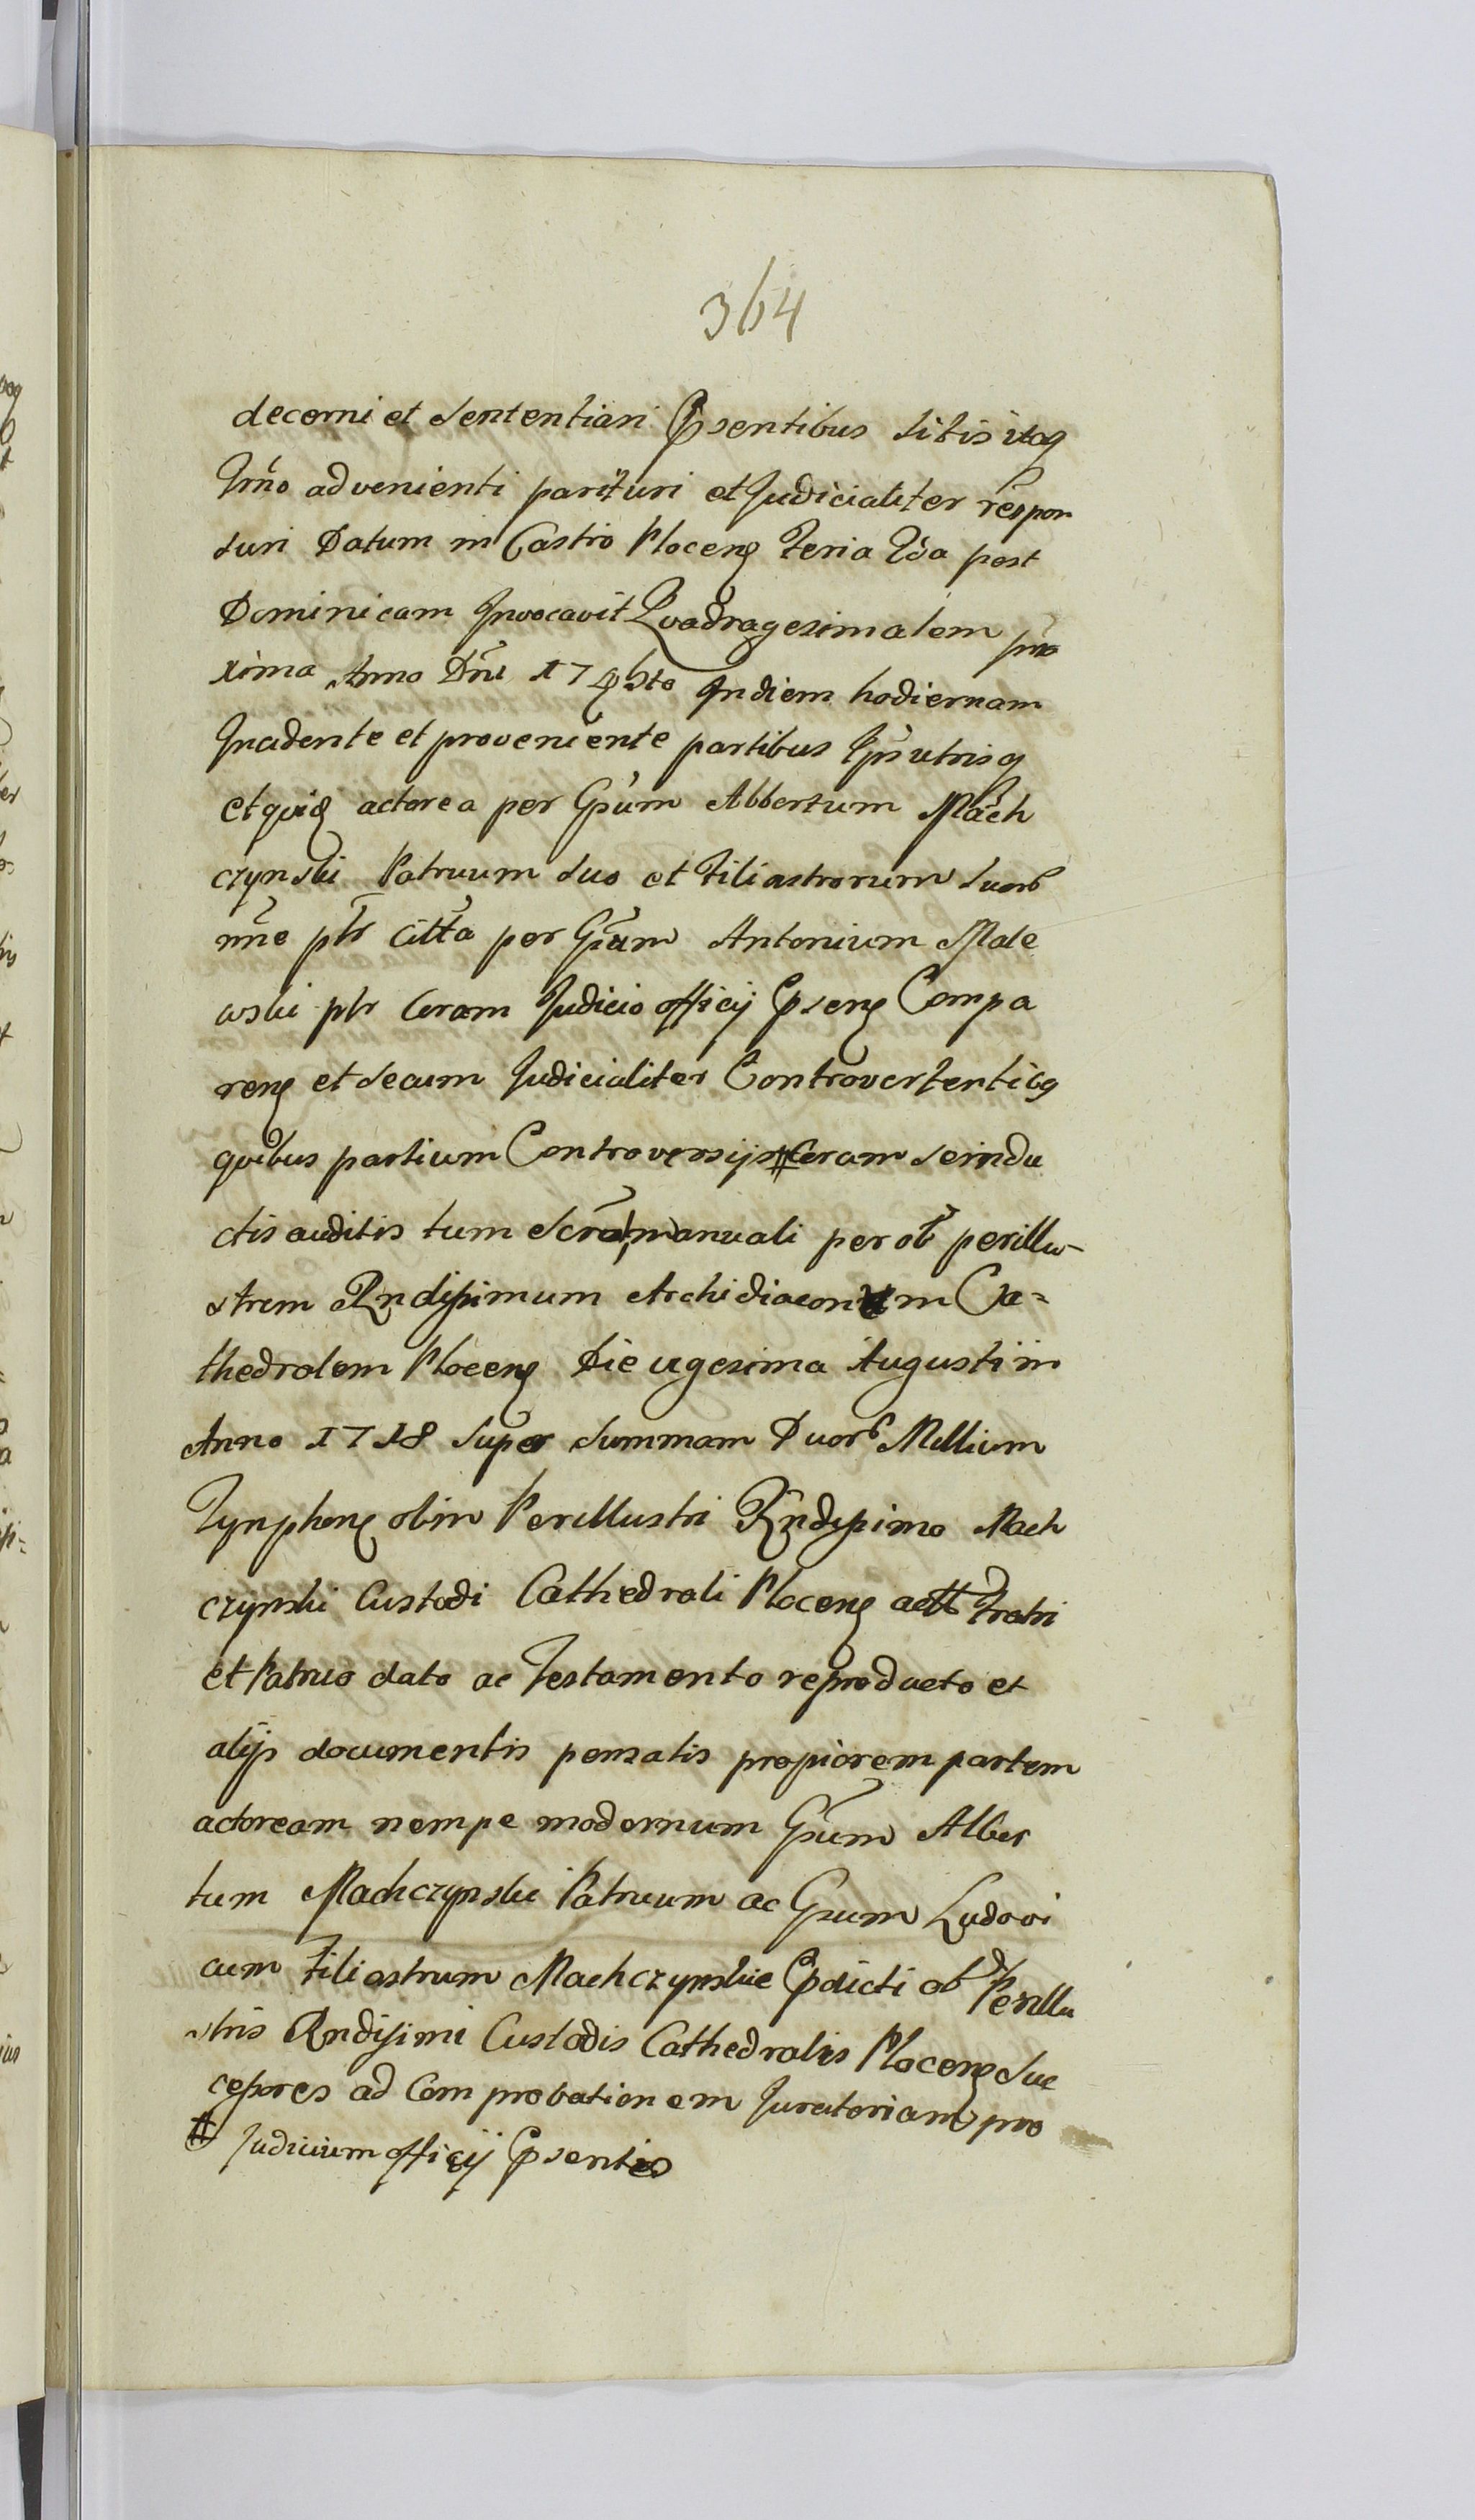 364
decerni et Sententiari Pñsentibus Sitis itaq
Trño advenienti parituri et Judicialiter respon
suri Datum in Castro Plocenȩ Feria 2da post
Dominicam Invocavit Quadragesimalem pro
xima Anno Dñi 17 Indiem hodiernam
Incidente et proveniente partibus Ipis utrisq
et quiđ actorea per Gsum Albertum Mach
czynski Patruum Suo et Filiastrorum Suorb
nñe ptr Citta per Gsum Antonium Male
wski ptr Coram Judicio officij Pñsenȩ Compa
renȩ et Secum Judicialiter Controvertentibq
quibus partium Controversijs # Coram Se indu
ctis auditis tum Scro manuali per ob perillu-
strem Rndissimum Archidiaconum Ca=
thedralem Plocenȩ Die vigesima Augusti in
Anno 1718 Super Summam Duorb Millium
Tynphenȩ olim Perillustri Rndissimo Mach
czynski Custodi Cathedrali Plocenȩ actt Fratri
et Patruo dato ac Testamento reproducto et
alijs documentis pensatis propiorem partem
actoream nempe modernum Gsum Alber
tum Machczynski Patruum ac Gsum Ludovi
cum Filiastrum Machczynskie Pdicti ob Perillu
stris Rndissimi Custodis Cathedralis Plocenȩ Suc
cessores ad Comprobationem Juratoriam pro
# Judicium officij Pñsentis